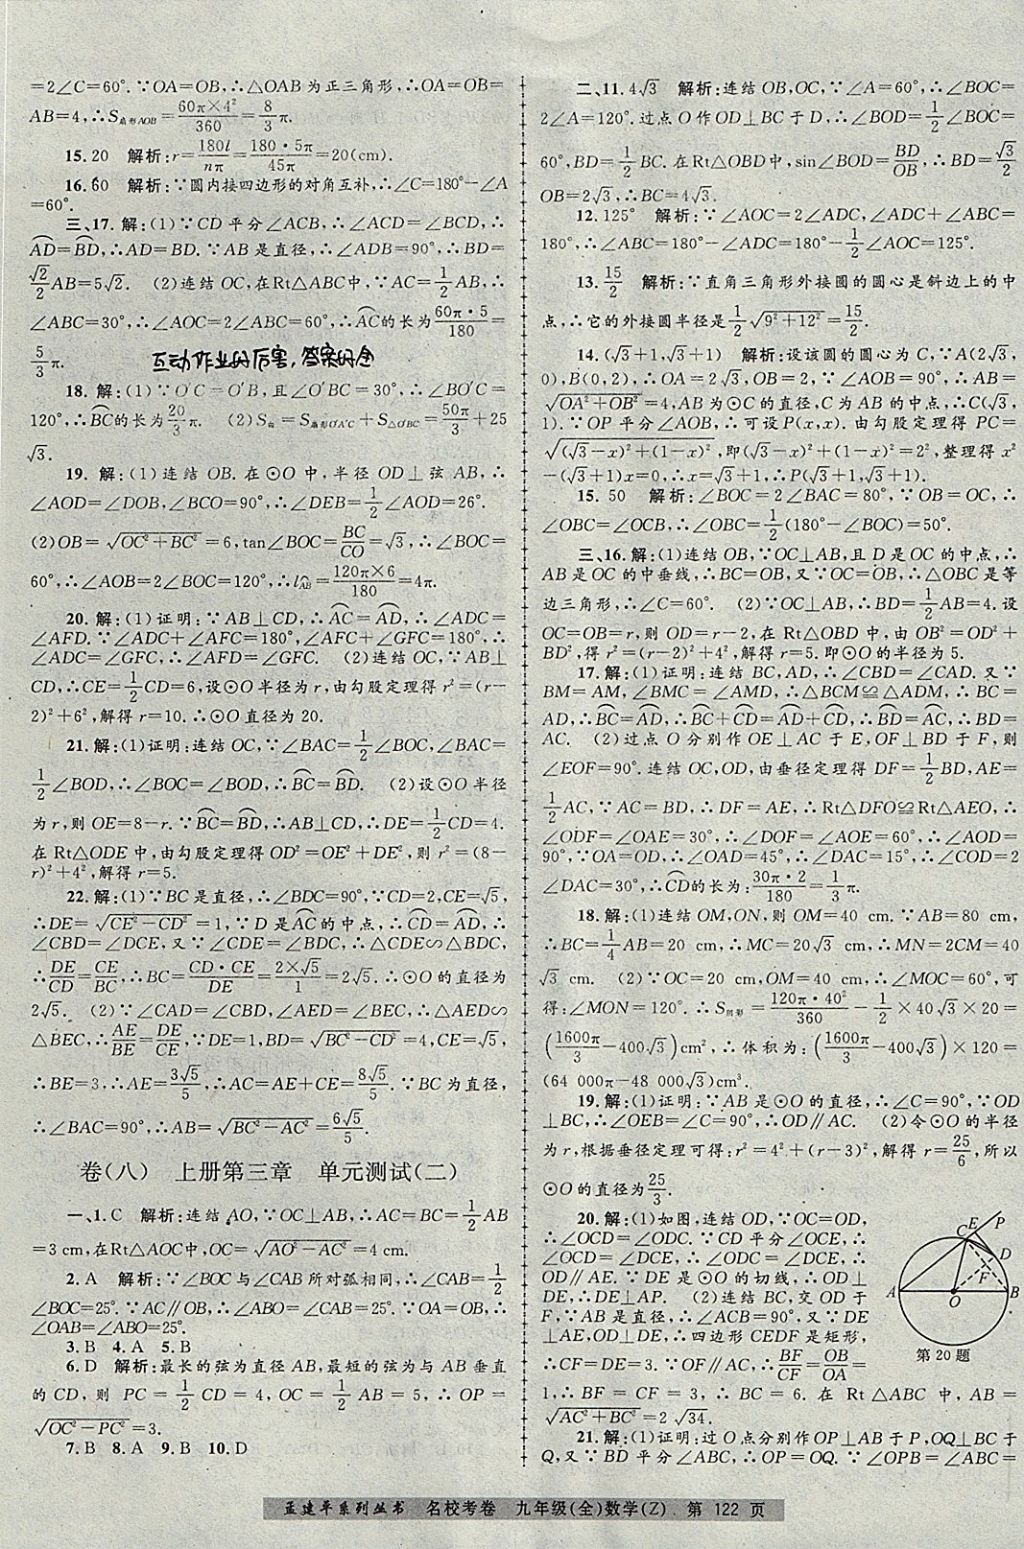 =2∠C=60°.∵OA=OB,∴△OAB为正三角形,∴OA=OB=
AB=4,∴S扇形AOB=60π×4²/360=8/3π.
15.20 解析:r=180l/nπ=180·5π/45π=20(cm).
16.60 解析:∵圆内接四边形的对角互补,∴∠C=180°-∠A
=60°.
三、17.解:(1)∵CD平分∠ACB,∴∠ACD=∠BCD,∴
⌒AD=⌒BD,∴AD=BD.∵AB是直径,∴∠ADB=90°,∴BD=
√2/2AB=5√2. (2)连结OC,在Rt△ABC中,∵AC=1/2AB,∴
∠ABC=30°,∴∠AOC=2∠ABC=60°,∴⌒AC的长为60π·5/180=
5/3π.
互动作业的厉害,答案的全
18.解:(1)∵O′C=O′B,且∠O′BC=30°,∴∠BO′C=
120°,∴⌒BC的长为20/3π. (2)S阴=S扇形O′A′C+S△O′BC=50π/3+25
√3.
19.解:(1)连结OB.在⊙O中,半径OD⊥弦AB,∴
∠AOD=∠DOB,∠BCO=90°,∴∠DEB=1/2∠AOD=26°.
(2)OB=√(OC²+BC²)=6,tan∠BOC=BC/CO=√3,∴∠BOC=
60°,∴∠AOB=2∠BOC=120°,∴l⌒AB=120π×6/180=4π.
20.解:(1)证明:∵AB⊥CD,∴⌒AC=⌒AD,∴∠ADC=
∠AFD.∵∠ADC+∠AFC=180°,∠AFC+∠GFC=180°,∴
∠ADC=∠GFC,∴∠AFD=∠GFC. (2)连结OC,∵AB⊥
CD,∴CE=1/2CD=6,设⊙O半径为r,由勾股定理得r²=(r-
2)²+6²,解得r=10.∴⊙O直径为20.
21.解:(1)证明:连结OC,∵∠BAC=1/2∠BOC,∠BAC=
1/2∠BOD,∴∠BOC=∠BOD,∴⌒BC=⌒BD. (2)设⊙O半径
为r,则OE=8-r.∵⌒BC=⌒BD,∴AB⊥CD,∴DE=1/2CD=4.
在Rt△ODE中,由勾股定理得OD²=OE²+DE²,则r²=(8-
r)²+4²,解得r=5.
22.解:(1)∵BC是直径,∴∠BDC=90°.∵CD=2,CE=√5,
∴DE=√(CE²-CD²)=1,∵D是⌒AC的中点,∴⌒CD=⌒AD,∴
∠CBD=∠DCE,又∵∠CDE=∠BDC,∴△CDE∽△BDC,
∴DE/CD=CE/BC,∴BC=CD·CE/DE=2×√5/1=2√5.∴⊙O的直径为
2√5. (2)∵∠CAD=∠CBD,∠AED=∠BEC,∴△AED∽
△BEC,∴AE/BE=DE/CE,∵DE=1,BD=√(BC²-CD²)=4,CE=√5,
∴BE=3,∴AE=3√5/5,∴AC=AE+CE=8√5/5.∵BC为直径,
∴∠BAC=90°,∴AB=√(BC²-AC²)=6√5/5.
卷(八) 上册第三章 单元测试(二)
一、1.C 解析:连结AO,∵OC⊥AB,∴AC=BC=1/2AB
=3 cm,在Rt△AOC中,OC=√(AO²-AC²)=4(cm).
2.A 解析:∵∠BOC与∠CAB所对弧相同,∴∠CAB=1/2
∠BOC=25°.∵AC∥OB,∴∠ABO=∠CAB=25°.∵OA=OB,∴
∠OAB=∠ABO=25°.
3.B 4.A 5.B
6.D 解析:最长的弦为直径AB,最短的弦为与AB垂直
的CD,则PC=1/2CD=4,OC=1/2AB=5,∴OP=
√(OC²-PC²)=3.
7.B 8.A 9.B 10.D
二、11.4√3 解析:连结OB,OC,∵∠A=60°,∴∠BOC=
2∠A=120°.过点O作OD⊥BC于D,∴∠BOD=1/2∠BOC=
60°,BD=1/2BC.在Rt△OBD中,sin∠BOD=BD/OB,∴BD=√3/2
OB=2√3,∴BC=4√3.
12.125° 解析:∵∠AOC=2∠ADC,∠ADC+∠ABC=
180°,∴∠ABC=180°-∠ADC=180°-1/2∠AOC=125°.
13.15/2 解析:∵直角三角形外接圆的圆心是斜边上的中
点,∴它的外接圆半径是1/2√(9²+12²)=15/2.
14.(√3+1,√3+1) 解析:设该圆的圆心为C,∵A(2√3,
0),B(0,2),∴OA=2√3,OB=2,∵∠AOB=90°,∴AB=
√(OA²+OB²)=4,AB为⊙C的直径,C为AB的中点,∴C(√3,
1).∵OP平分∠AOB,∴可设P(x,x).由勾股定理得PC=
√((√3-x)²+(1-x)²),即(√3-x)²+(1-x)²=2²,整理得x²
-(√3+1)x=0,∴x=√3+1,∴P(√3+1,√3+1).
15.50 解析:∠BOC=2∠BAC=80°,∵OB=OC,∴
∠OBC=∠OCB,∴∠OBC=1/2(180°-∠BOC)=50°.
三、16.解:(1)连结OB,∵OC⊥AB,且D是OC的中点,∴
AB是OC的中垂线,∴OB=BC,∵OB=OC,∴△OBC是等
边三角形,∴∠C=60°. (2)∵OC⊥AB,∴BD=1/2AB=4.设
OC=OB=r,则OD=r-2,在Rt△OBD中,由OB²=OD²+
BD²,得r²=(r-2)²+4²,解得r=5.即⊙O的半径为5.
17.解:(1)证明:连结BC,AD,∴∠CBD=∠CAD.又∵
BM=AM,∠BMC=∠AMD,∴△BCM≌△ADM,∴BC=
AD,∴⌒BC=⌒AD,∴⌒BC+⌒CD=⌒AD+⌒CD,∴⌒BD=⌒AC,∴BD=
AC. (2)过点O分别作OE⊥AC于E,OF⊥BD于F,则
∠EOF=90°.连结OC,OD,由垂径定理得DF=1/2BD,AE=
1/2AC,∵AC=BD,∴DF=AE,∴Rt△DFO≌Rt△AEO,∴
∠ODF=∠OAE=30°,∴∠DOF=∠AOE=60°,∴∠AOD=
90°.∵OA=OD,∴∠OAD=45°,∴∠DAC=15°,∴∠COD=2
∠DAC=30°,∴⌒CD的长为:30π·2/180=1/3π.
18.解:(1)连结OM,ON,则OM=40 cm.∵AB=80 cm,
∴BC=1/4AB=20 cm,∴MC=20√3 cm,∴MN=2CM=40
√3 cm. (2)∵OC=20 cm,OM=40 cm,∴∠MOC=60°,可
得:∠MON=120°,∴S阴影=120π·40²/360-1/2×40√3×20=
(1600π/3-400√3)cm²,∴体积为:(1600π/3-400√3)×120=
(64 000π-48 000√3)cm³.
19.解:(1)证明:∵AB是⊙O的直径,∴∠C=90°,∵OD
⊥BC,∴∠OEB=∠C=90°,∴OD∥AC. (2)令⊙O的半径
为r,根据垂径定理可得:r²=4²+(3-r)²,解得:r=25/6,所以
⊙O的直径为25/3.
20.解:(1)如图,连结OD,∵OC=OD,
∴∠OCD=∠ODC.∵CD平分∠OCE,∴
∠OCD=∠DCE,∴∠ODC=∠DCE,∴
OD∥AE.∵DE是⊙O的切线,∴OD⊥
DE,∴DE⊥AP. (2)连结BC,交OD于
F,∵AB是直径,∴∠ACB=90°,又∵DE
⊥AE,OD⊥DE,∴四边形CEDF是矩形,
∴CF=DE=3.∵OD∥AE,∴BF/CF=OB/OA=
1,∴BF=CF=3,∴BC=6.在Rt△ABC中,AB=
√(AC²+BC²)=2√34.
C E P
D
F
A O B
第20题
21.解:(1)证明:过O点分别作OP⊥AB于P,OQ⊥BC于
Q,又∵BD平分∠ABC,∴OP=OQ,∴∠OPQ=∠OQP=
孟建平系列丛书 名校考卷 九年级(全)数学(Z) 第 122 页